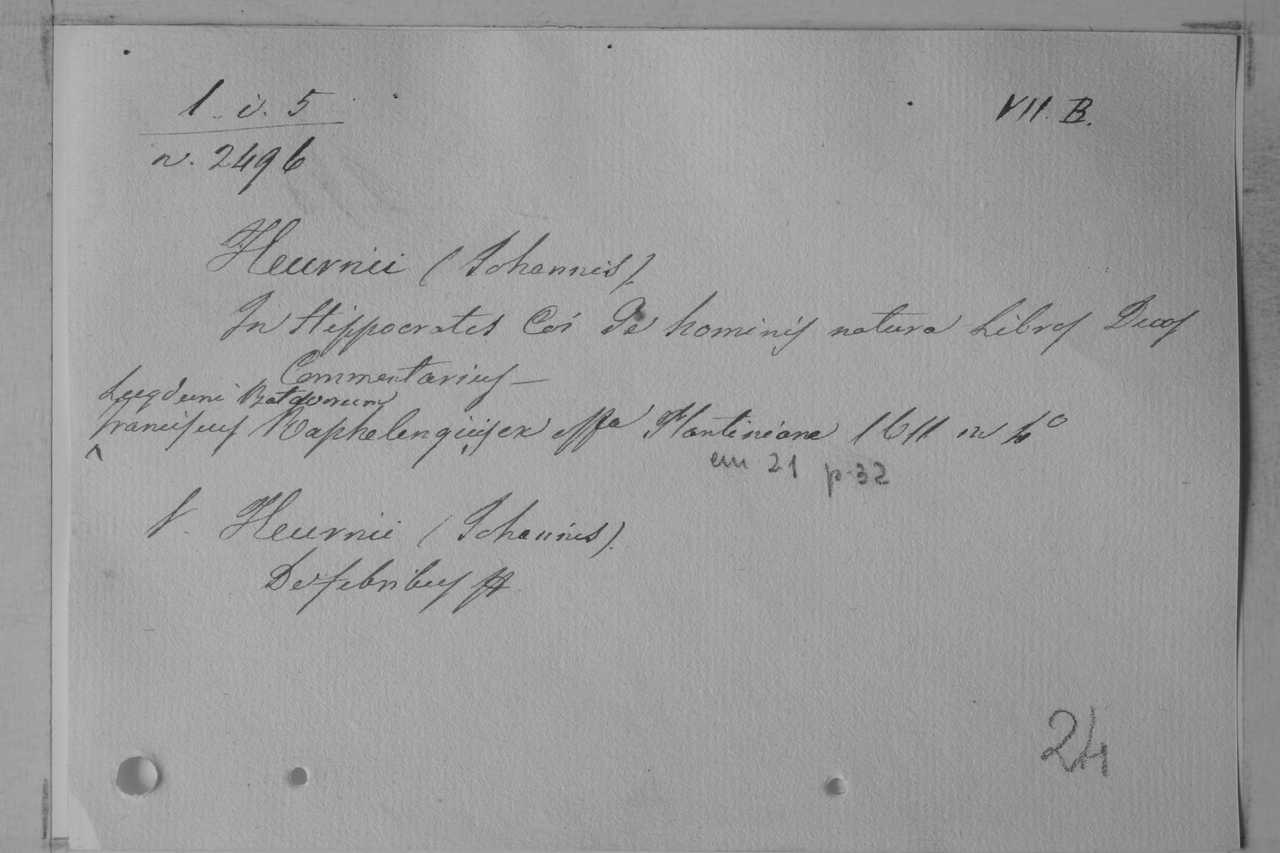 1. i. 5
VII. B.
n. 2496
Heurnii (Iohannis)
In Hippocrates Coi De hominis natura Libros Duos
Commentarius —
Lugduni Batavorum
Franciscus Raphelengius ex offa Plantiniana 1611 in 4º
em 21 p. 32
V. Heurnii (Iohannis).
De febribus
24